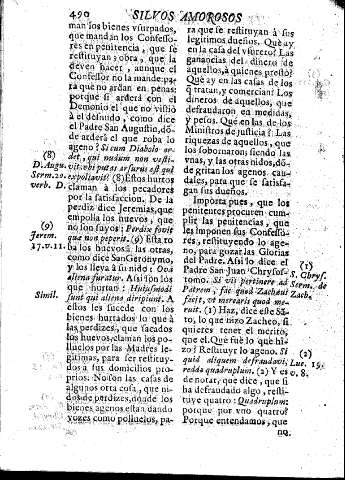 490 SILVOS AMOROSOS
man los bienes vsurpados,
que mandan los Confesso-
res en penitencia, que se
restituyan; obra, que la
deven hacer, aunque el
Confessor no la mande: pa-
ra que no ardan en penas:
porque si arderà con el
Demonio el que no vistiò
à el desnudo, como dice
el Padre San Augustin, dò-
de arderà el que roba lo
ageno? Si cum Diabolo ar-
(8) det, qui nudum non vesti-
D. Aug. vit, ubi putas arsurus est qui
Serm. 20. expoliavit? (8) Estos hurtos
verb. D. claman à los pecadores
por la satisfaccion. De la
perdiz dice Jeremias, que
empolla los huevos, que
no son suyos: Perdix fovit
(9) que non peperit. (9) Esta ro-
Jerem. ba los huevos à las otras,
17. v. 11. como dice San Geronymo,
y los lleva à su nido: Ova
aliena furatur. Assi son los
que hurtan: Hiiusmodi
Simil. sunt qui aliena diripiunt. A
estos les sucede con los
bienes hurtados lo que à
las perdizes, que sacados
los huevos, claman los po-
lluelos por las Madres le-
gitimas, para ser restituy-
dos à sus domicilios pro-
prios. No son las casas de
algunos otra cosa, que ni-
dos de perdizes, donde los
bienes agenos estan dando
vozes como polluelos, pa-
ra que se restituyan à sus
legitimos dueños. Què ay
en la casa del vsurero? Las
ganancias del dinero de
aquellos, à quienes prestò?
Què ay en las casas de los
q̃ tratan, y comercian? Los
dineros de aquellos, que
defraudaron en medidas,
y pesos. Què en las de los
Ministros de justicia? La
riquezas de aquellos, que
los sobornaron; siendo las
vnas, y las otras nidos, dõ-
de gritan los agenos cau-
dales, para que se satisfa-
gan sus dueños.
Importa pues, que los
penitentes procuren cum-
plir las penitencias, que
les imponen sus Confesso-
res, restituyendo lo age-
no, para gozar las Glorias
del Padre. Assi lo dice el
Padre San Juan Chrysos- (1)
tomo. Si vis pertinere ad S. Chrys.
Patrem; fac quod Zachæus Serm. de
facit, ut mercaris quod me- Zach.
ruit. (1) Haz, dice este Sã-
to, lo que hizo Zacheo, si
quieres tener el merito,
que el. Què fue lo que hi-
zo? Restituyr lo ageno. Si (2)
quid aliquem defraudavi, Luc. 19.
reddo quadruplum. (2) Y es v. 8.
de notar, que dice, que si
ha defraudado algo, resti-
tuye quatro: Quadruplum:
porque por vno quatro?
Porque entendamos, que
no.